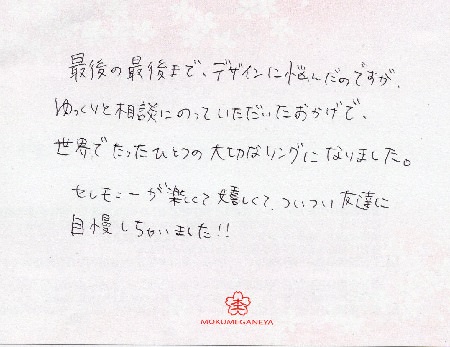 最後の最後まで、デザインに悩んだのですが、
ゆっくりと相談にのっていただいたおかげで、
世界でたったひとつの大切なリングになりました。
セレモニーが楽しくて嬉しくて、ついつい友達に
自慢しちゃいました!!
MOKUMEGANEYA